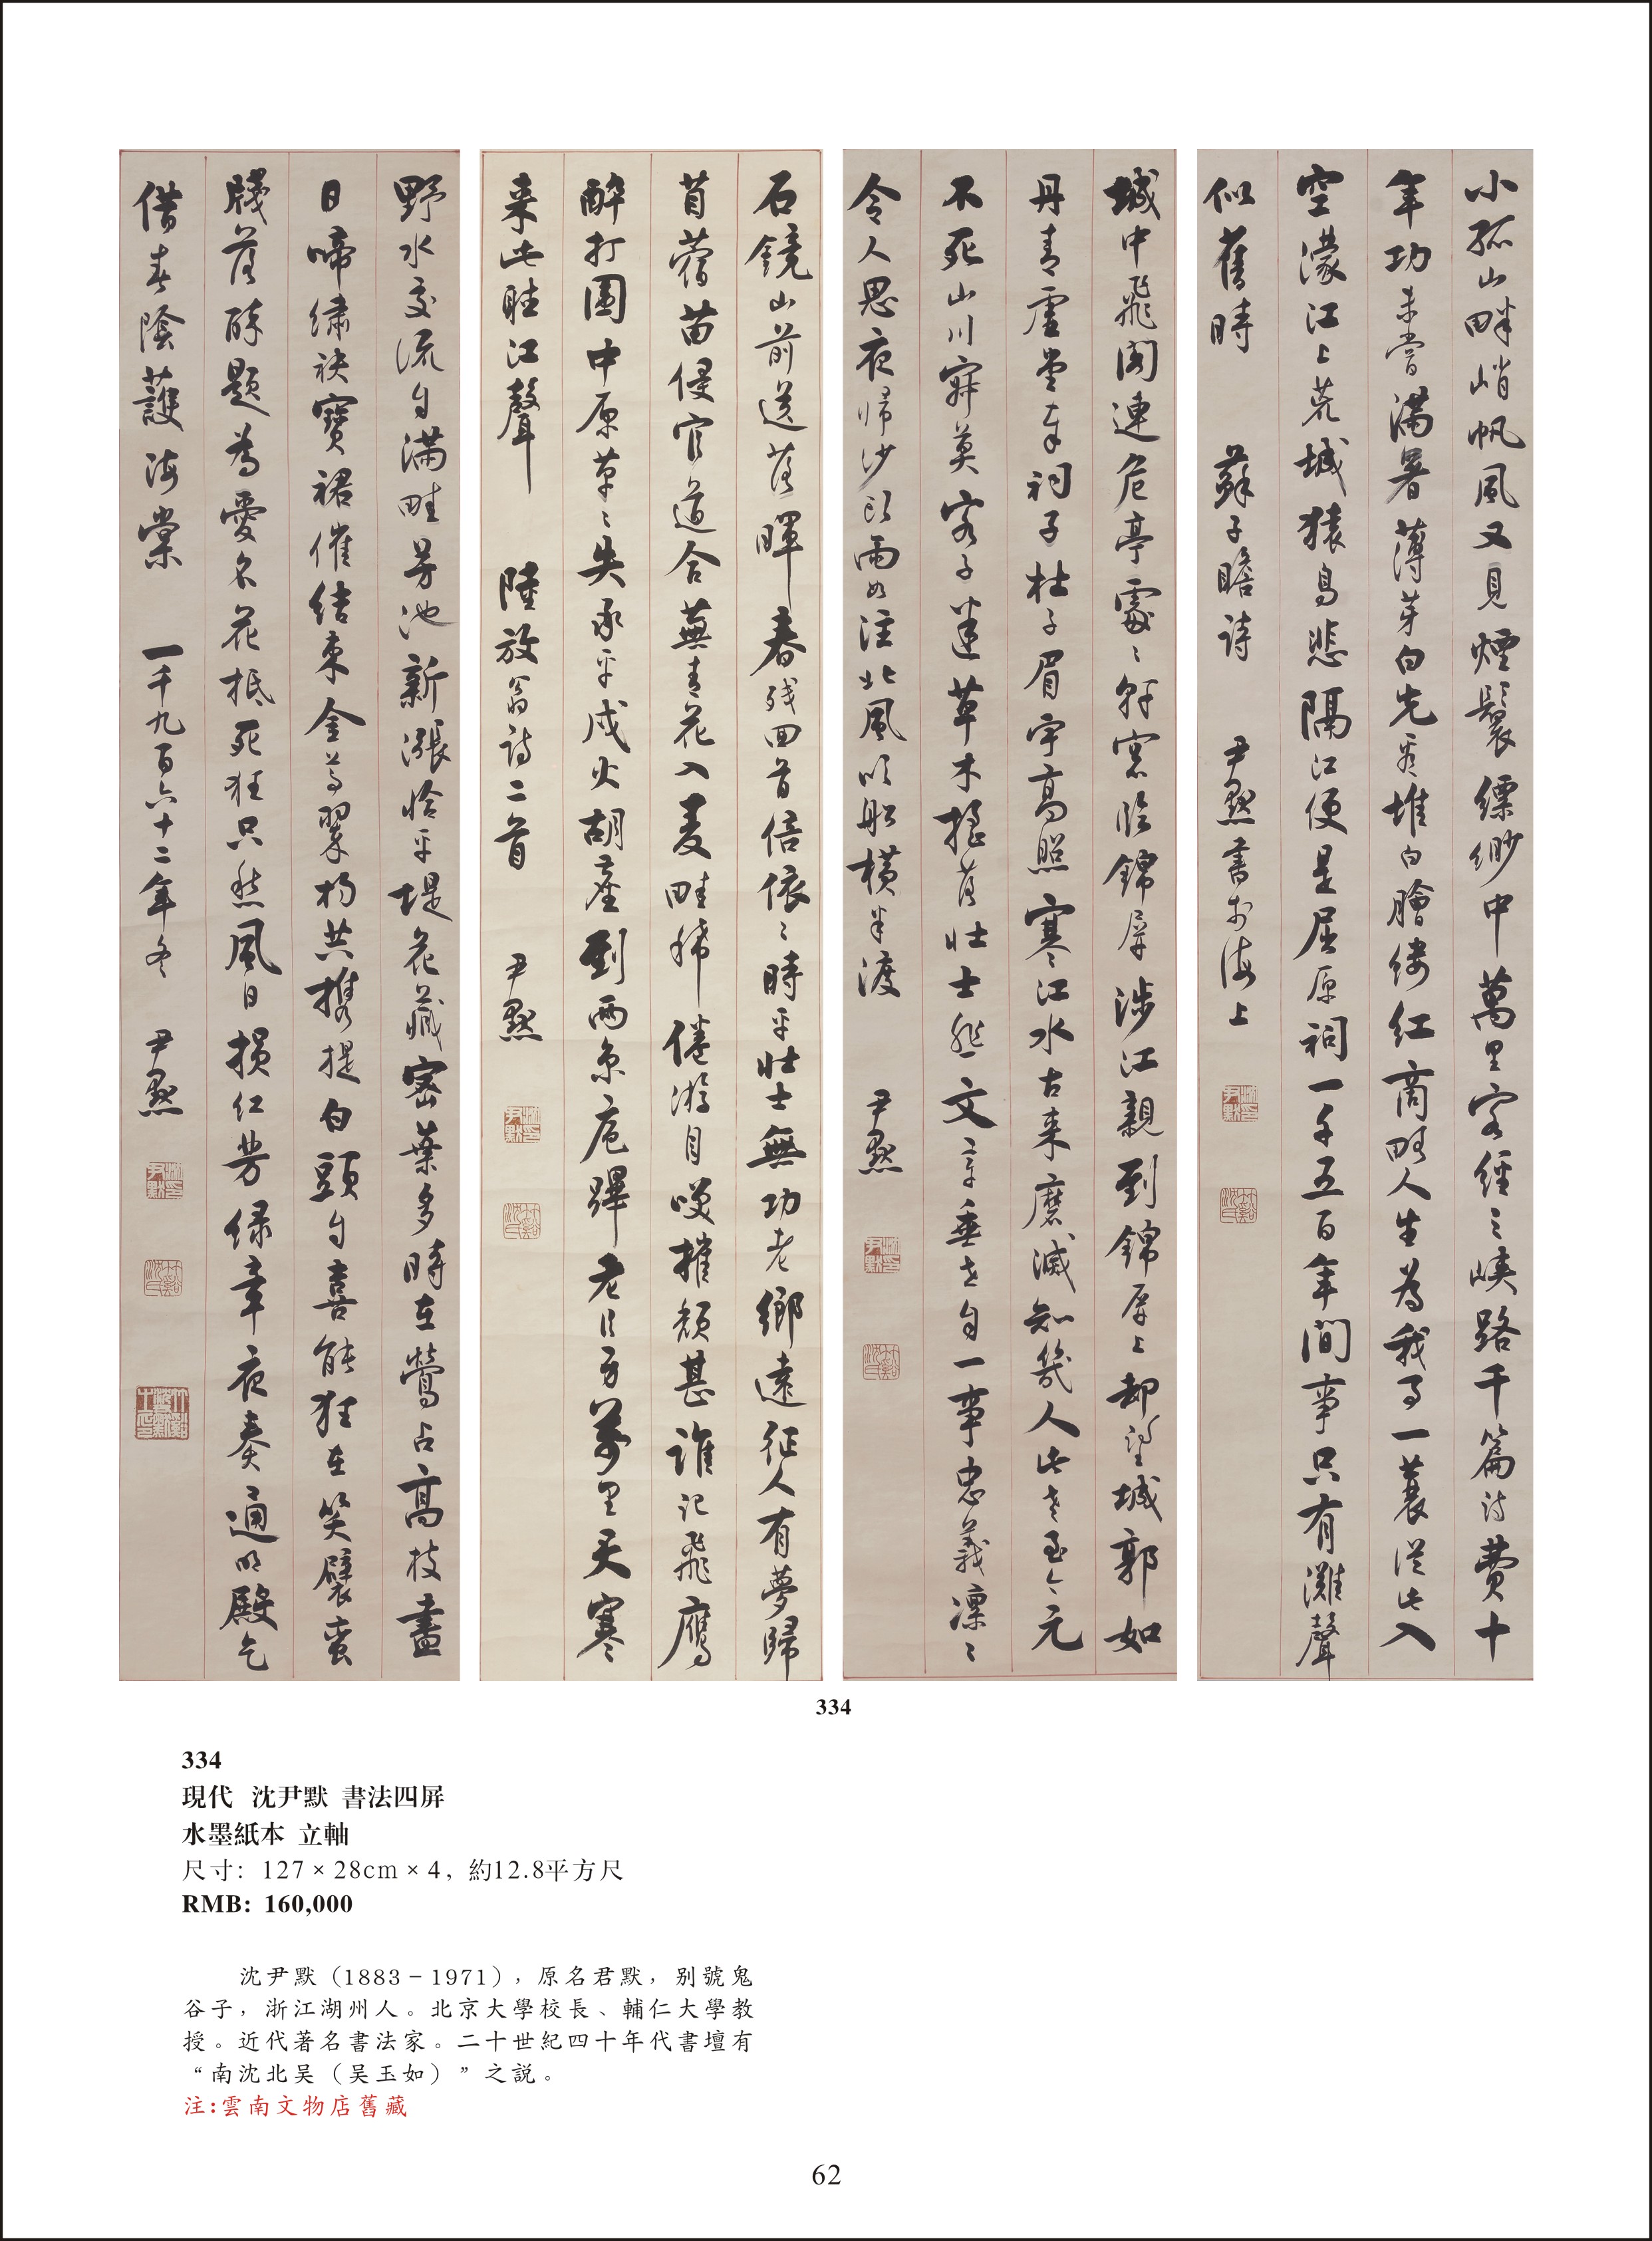 小孤山畔峭帆風又見煙鬟縹緲中萬里客經三峽路千篇詩費十
年功未嘗滿暑薄芽白先看堆白膾縷紅商略人生為我事一蓑從此入
空濛江上荒城猿鳥悲隔江便是屈原祠一千五百年間事只有灘聲
似舊時 蘇子瞻詩 尹默書於海上
城中飛閣連危亭處〻軒窗臨錦屏涉江親到錦屏上却望城郭如
丹青虛堂奉祠子杜子眉宇高照寒江水古來磨滅知幾人此老至今元
不死山川寂莫客子迷草木搖落壯士悲文章垂世自一事忠義凜〻
令人思夜歸沙頭雨如注北風吹船橫半渡 尹默
石鏡山前送落暉春殘回首倍依〻時平壯士無功老鄉遠征人有夢歸
苜蓿苗侵官道合蕪菁花入麥畦稀倦游自嘆摧頹甚誰記飛鷹
醉打圍中原草〻失承平戍火胡塵到兩京扈蹕老臣身萬里天寒
來此聽江聲 陸放翁詩二首 尹默
野水交流自滿畦芳池新漲恰平堤花藏密葉多時在鶯占高枝盡
日啼繡袂寶裙催結束金尊翠杓共攜提白頭自喜能狂在笑襞蠻
牋落醉題為愛名花抵死狂只愁風日損紅芳綠章夜奏通明殿乞
借春陰護海棠 一千九百六十二年冬 尹默
334
334
現代 沈尹默 書法四屏
水墨紙本 立軸
尺寸：127×28cm×4，約12.8平方尺
RMB: 160,000
沈尹默（1883－1971），原名君默，别號鬼
谷子，浙江湖州人。北京大學校長、輔仁大學教
授。近代著名書法家。二十世紀四十年代書壇有
“南沈北吴（吴玉如）”之説。
注:雲南文物店舊藏
62